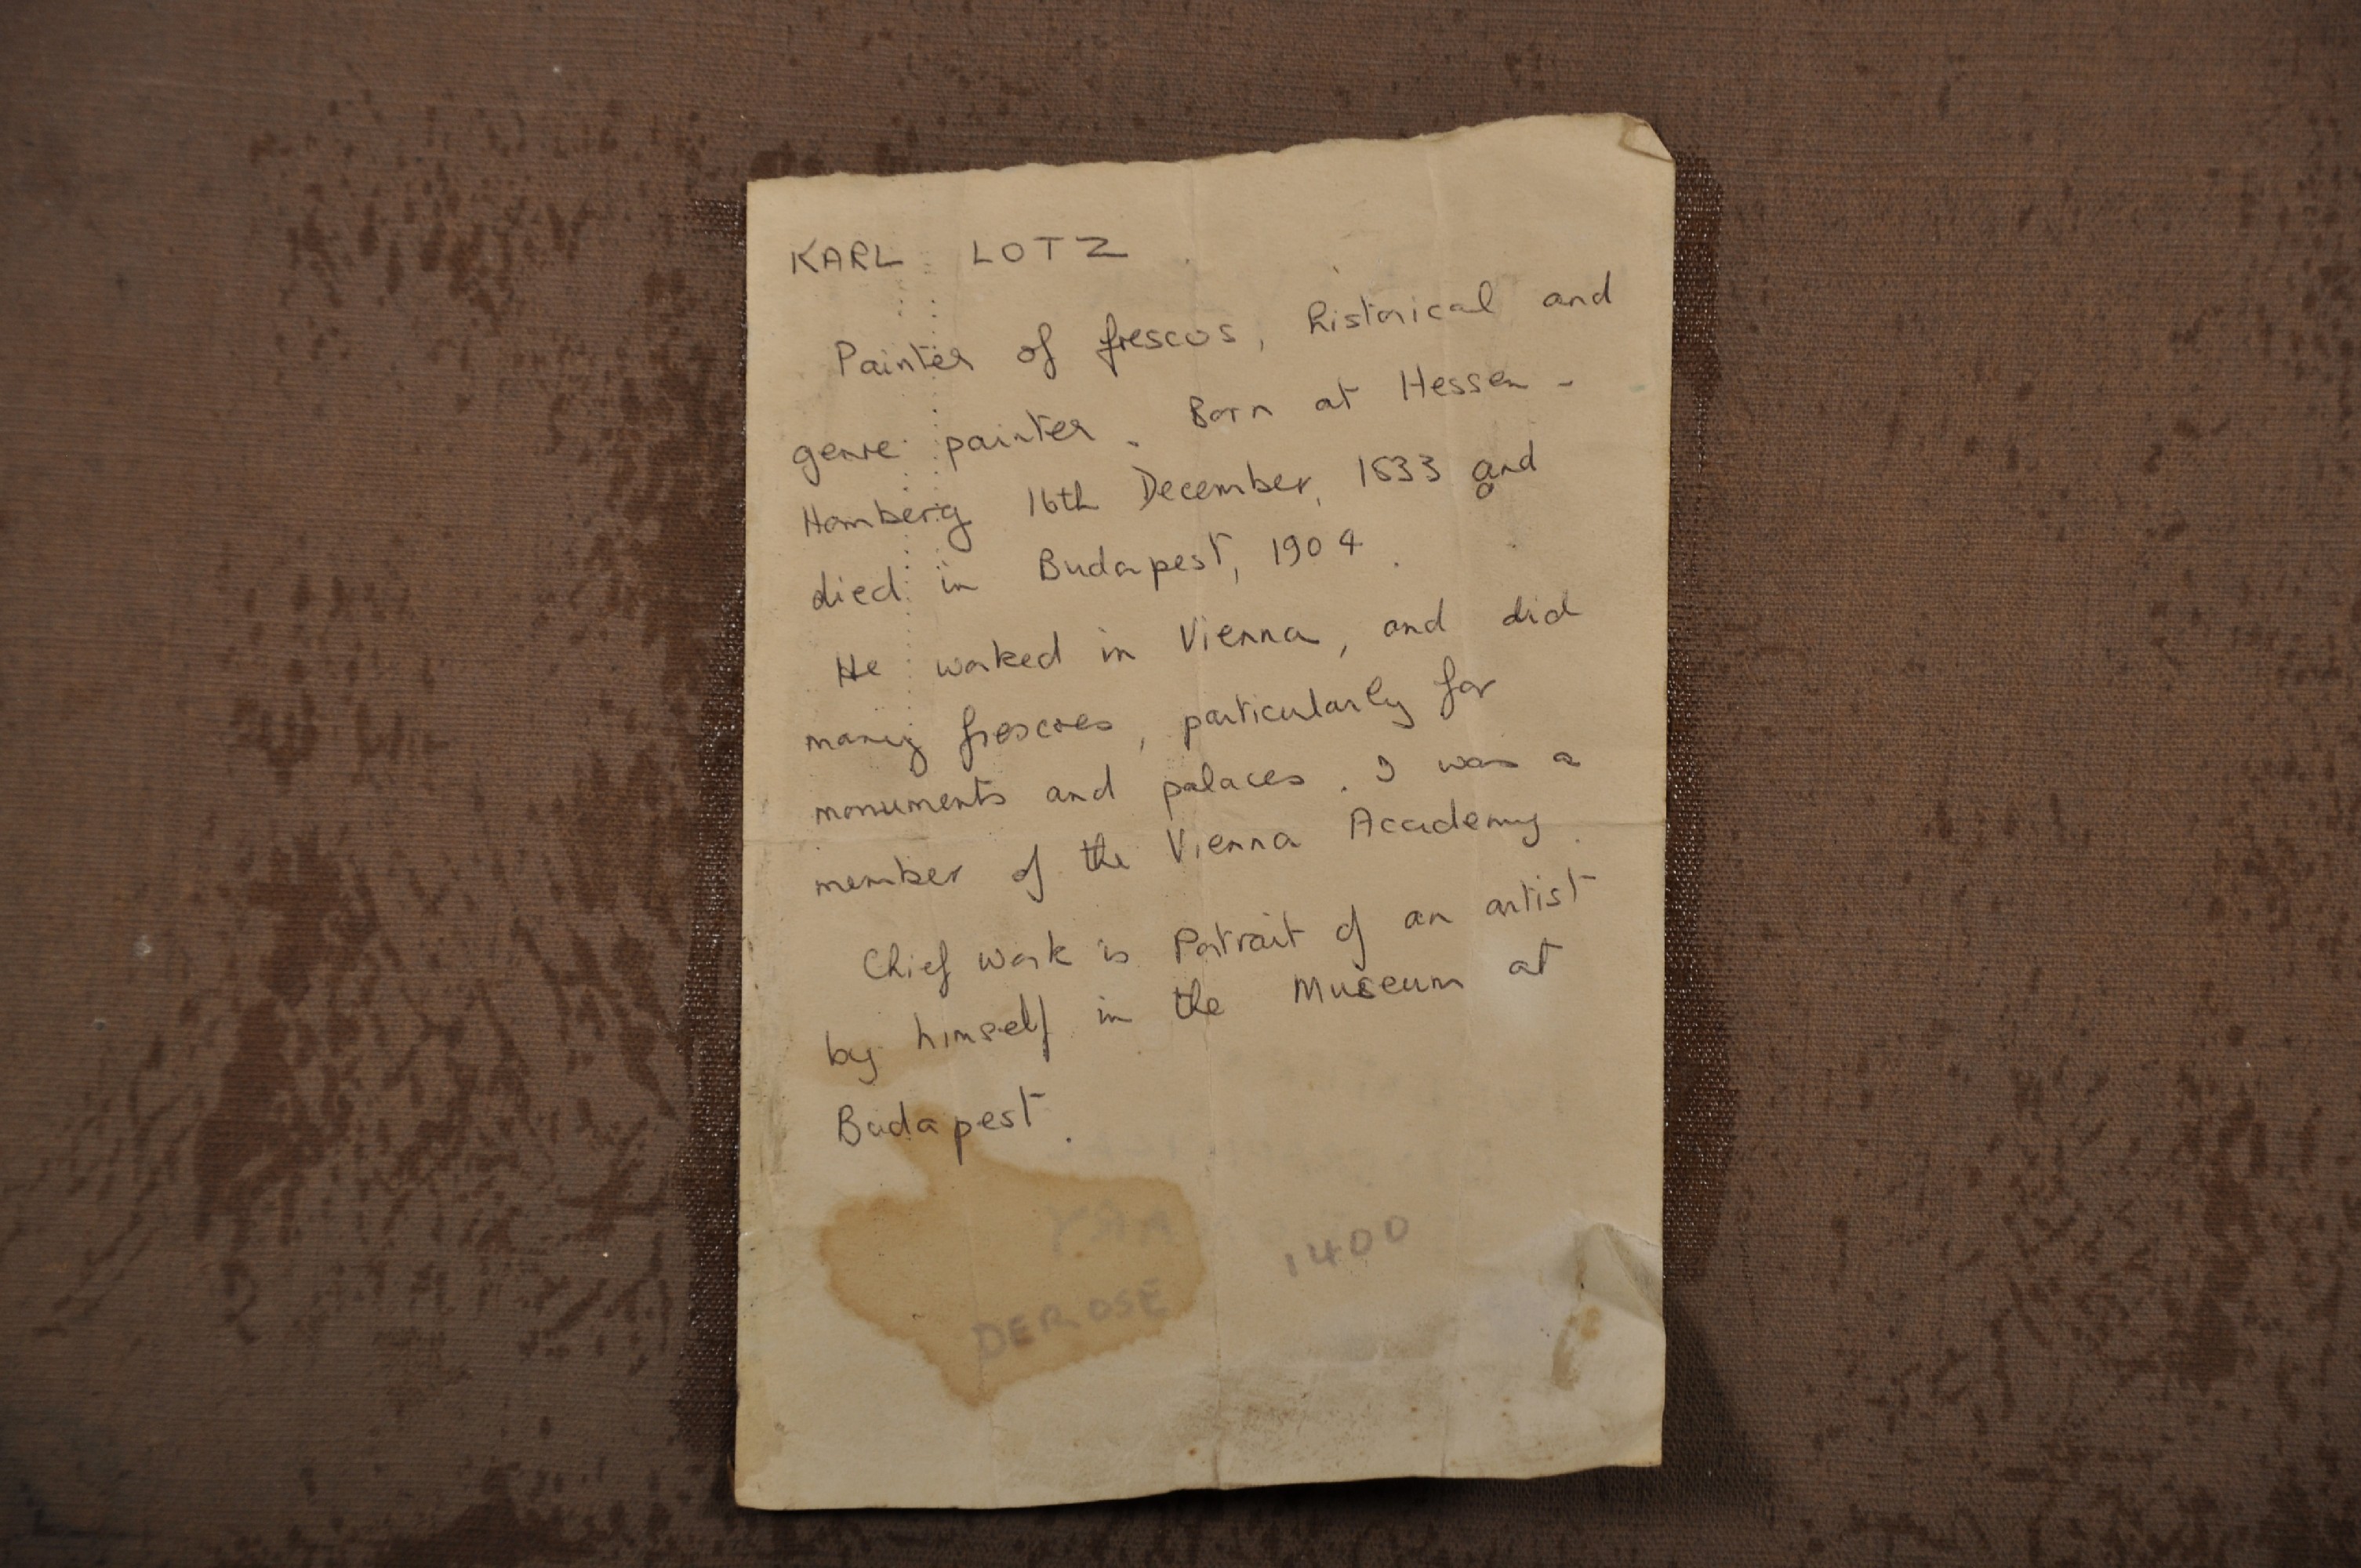 KARL LOTZ
Painter of frescos, historical and
genre painter. Born at Hessen-
Homberg 16th December, 1833 and
died in Budapest, 1904.
He worked in Vienna, and did
many frescoes, particularly for
monuments and palaces. I was a
member of the Vienna Academy.
Chief work is Portrait of an artist
by himself in the Museum at
Budapest.
1400
DEROSE